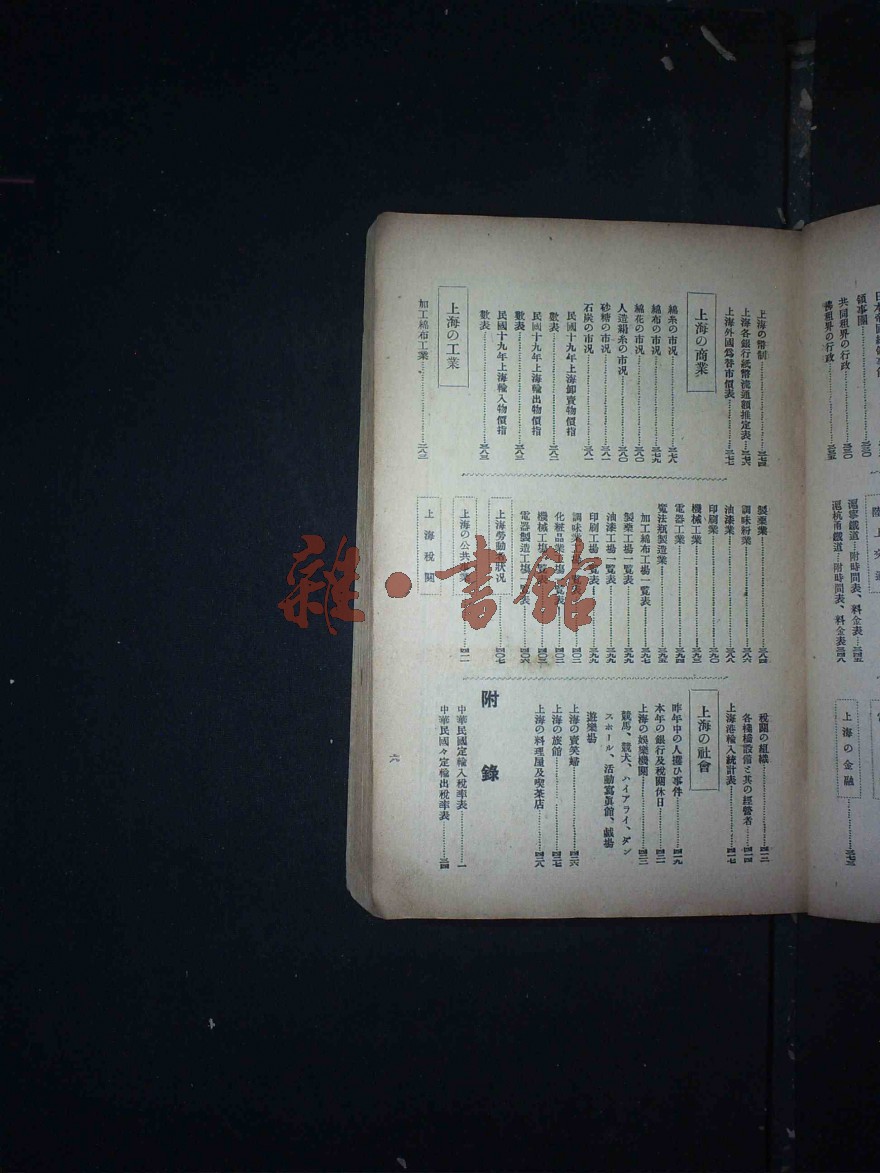 日本帝國總領事館
領事團
共同租界の行政……三三〇
佛租界の行政……三三五
陸上交通
滬寧鐵道―附時間表、料金表…三四五
滬杭甬鐵道…附時間表、料金表…三四八
上海の金融……三七三
上海の幣制……三七四
上海各銀行紙幣流通額推定表……三七六
上海外國爲替市價表……三七七
上海の商業
綿糸の市況……三七八
綿布の市況……三七九
綿花の市況……三八〇
人造絹糸の市況……三八〇
砂糖の市況……三八一
石炭の市況……三八一
民國十九年上海卸賣物價指
數表……三八二
民國十九年上海輸出物價指
數表……三八三
民國十九年上海輸入物價指
數表……三八三
上海の工業
加工綿布工業……三八三
製藥業……三八四
調味粉業……三八六
油漆業……三八八
印刷業……三九〇
機械工業……三九三
電器工業……三九四
魔法瓶製造業……三九五
加工綿布工場一覧表……三九七
製藥工場一覧表……三九九
油漆工場一覧表……三九九
印刷工場一覧表……三九九
調味業工場一覧表……四〇三
化粧品業工場一覧表……四〇三
機械工場一覧表……四〇三
電器製造工場一覧表……四〇六
上海勞動者狀況……四〇七
上海の公共事業……四一一
上海稅關
稅關の組織……四一三
各棧橋設備と其の經營者……四一四
上海港輸入統計表……四一七
上海の社會
昨年中の人攫ひ事件……四一九
本年の銀行及稅關休日……四二一
上海の娛樂機關……四二三
競馬、競犬、ハイアライ、ダン
スホール、活動寫眞館、戲場
遊樂場
上海の賣笑婦……四二六
上海の旅館……四二七
上海の料理屋及喫茶店……四二八
附錄
中華民國定輸入稅率表……一
中華民國々定輸出稅率表……三四
六
雜·書館